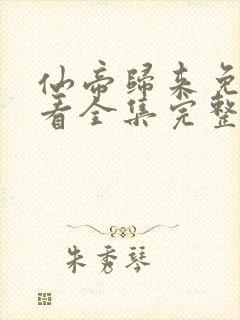 仙帝歸来免
着全集完整
朱秀琴